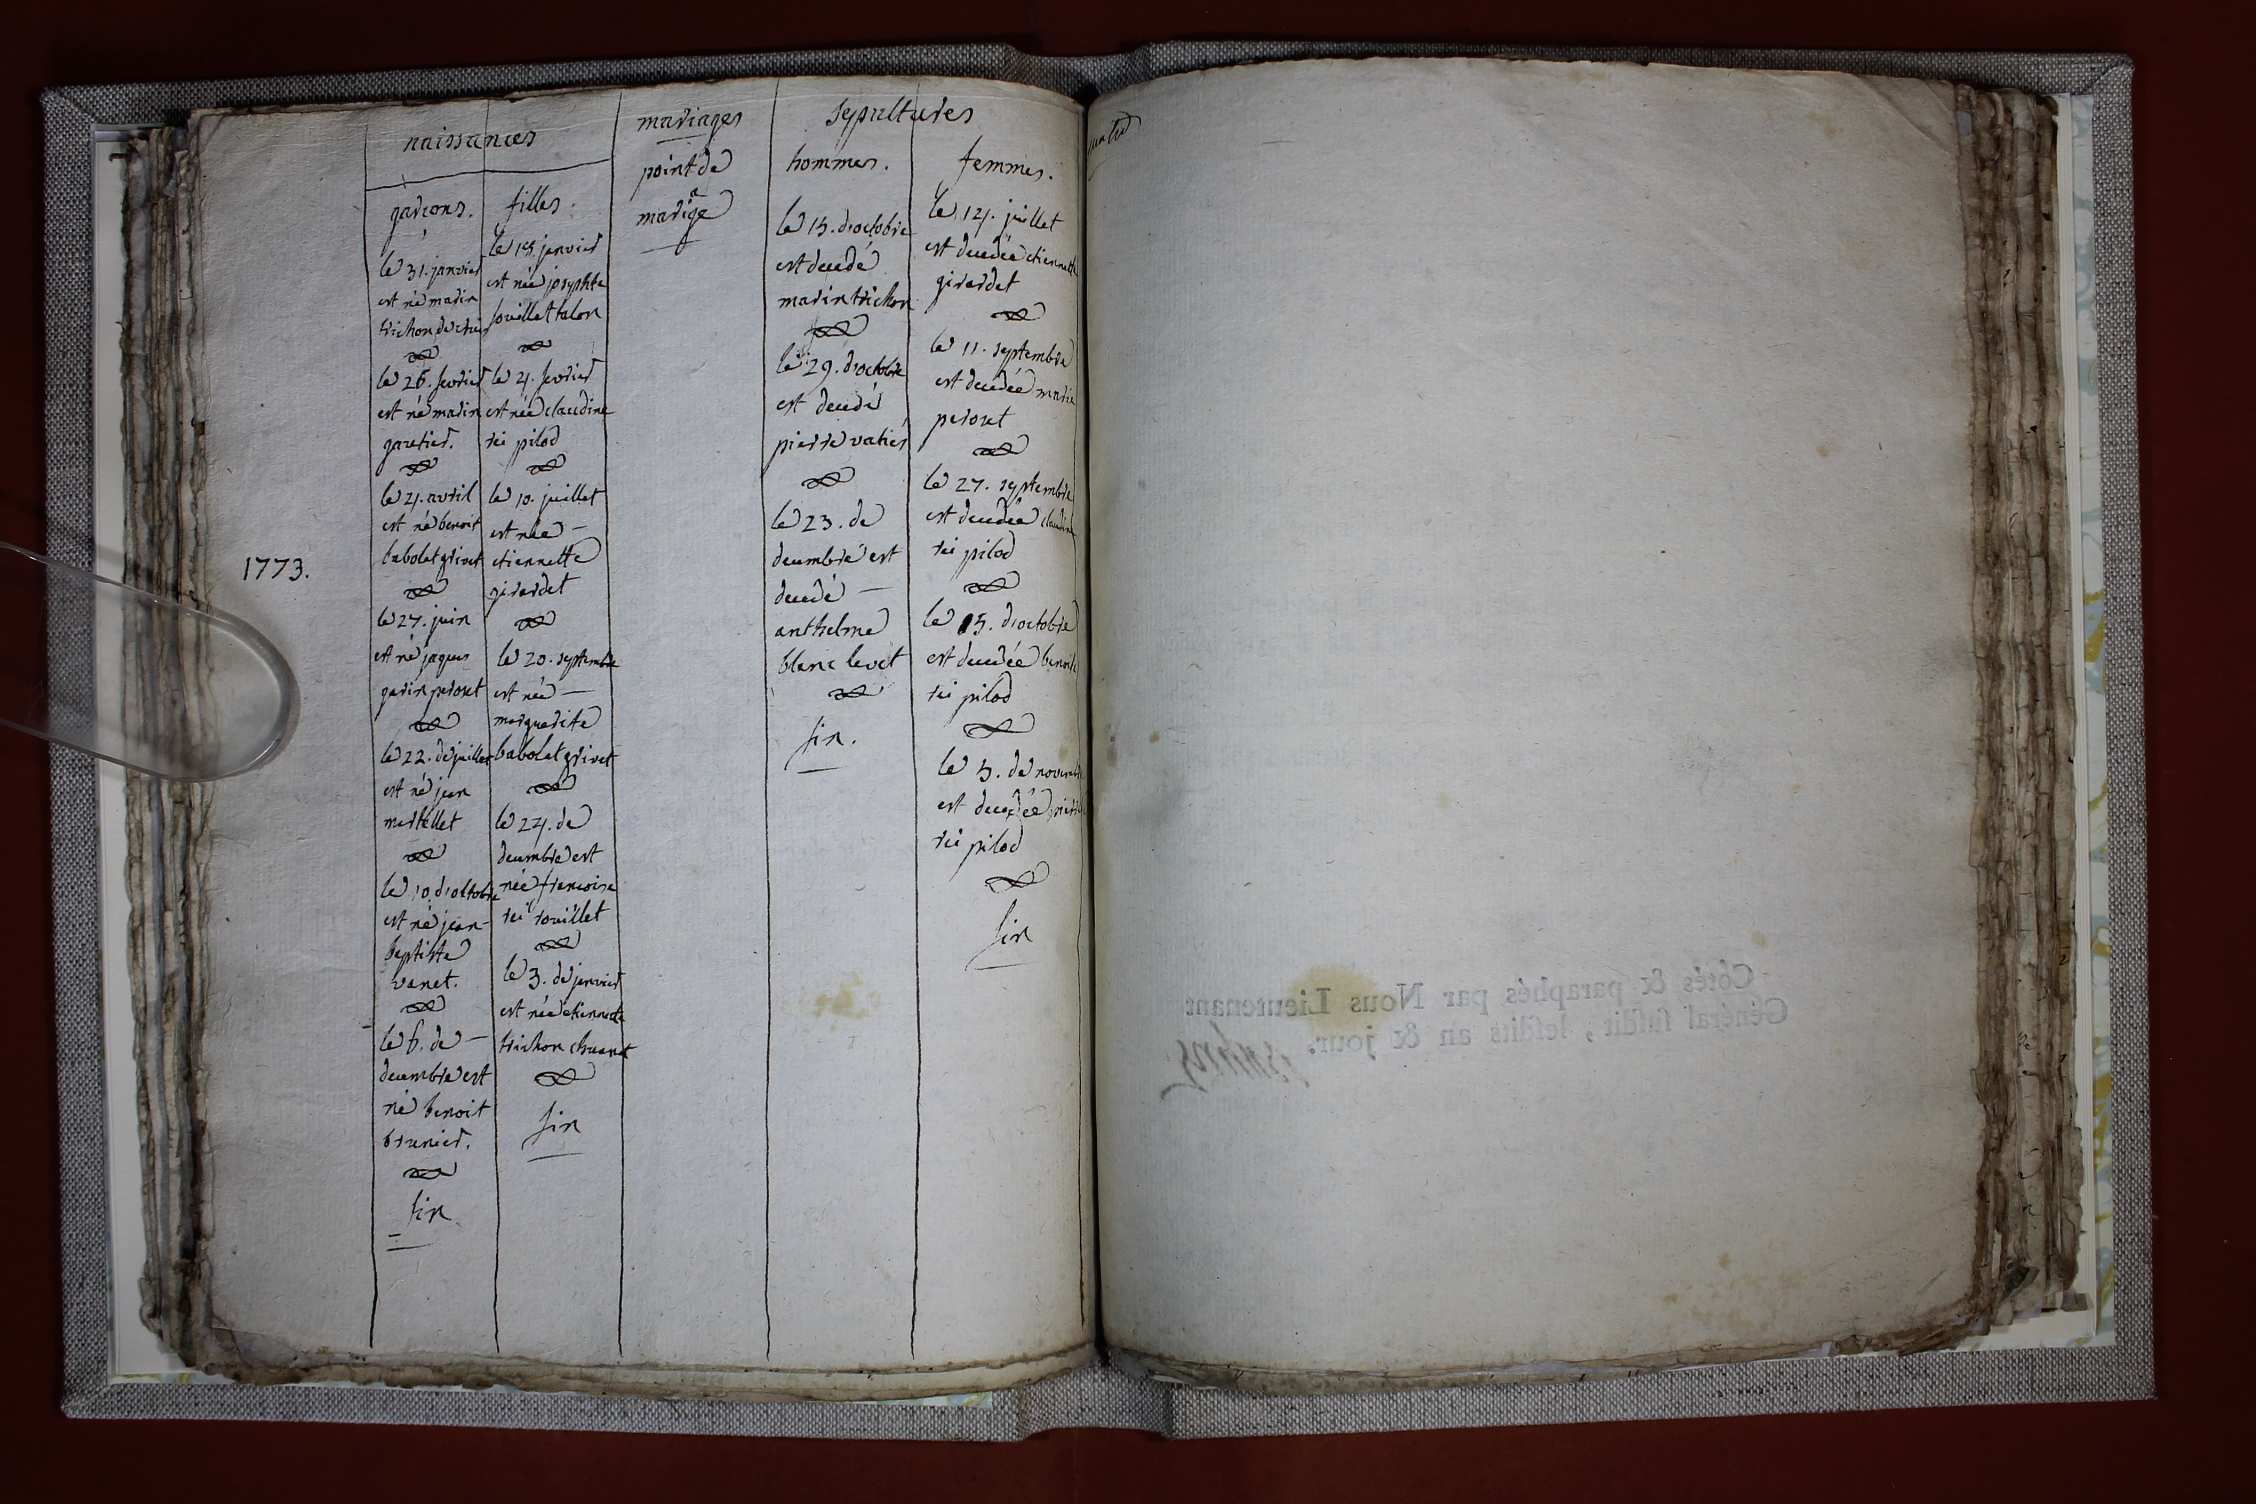 1773.
naissances
garcons.
le 31. janvier
est né marin
trichon
le 26. fevrier
est né marin
gautier.
le 21. avril
est né benoit
babolat grivet
le 27. juin
est né jaques
garin peronet
le 22. de juillet
est né jean
martellet
le 10. d'octobre
est né jean-
baptiste
vanet.
le 6. de
decembre est
né benoit
brunier.
fin
filles.
le 15. janvier
est née josephte
souillet talon
le 21. fevrier
est née claudine
rei pilod
le 10. juillet
est née
etiennette
girardet
le 20. septembre
est née
marguerite
babolat grivet
le 24. de
decembre est
née francoise
rei souillet
le 3. de janvier
est née etiennette
trichon
fin
mariages
point de
mariage
sepultures
hommes.
le 15. d'octobre
est decedé
marin trichon
le 29. d'octobre
est decedé
pierre vatier
le 23. de
decembre est
decedé
anthelme
blanc levet
fin.
femmes.
le 14. juillet
est decedée etiennette
girardet
le 11. septembre
est decedée marie
peronet
le 27. septembre
est decedée claudine
rei pilod
le 15. d'octobre
est decedée benoite
rei pilod
le 5. de novembre
est decedée
rei pilod
fin
Cotés & paraphés par Nous Lieutenant
Général susdit, lesdits an & jour.